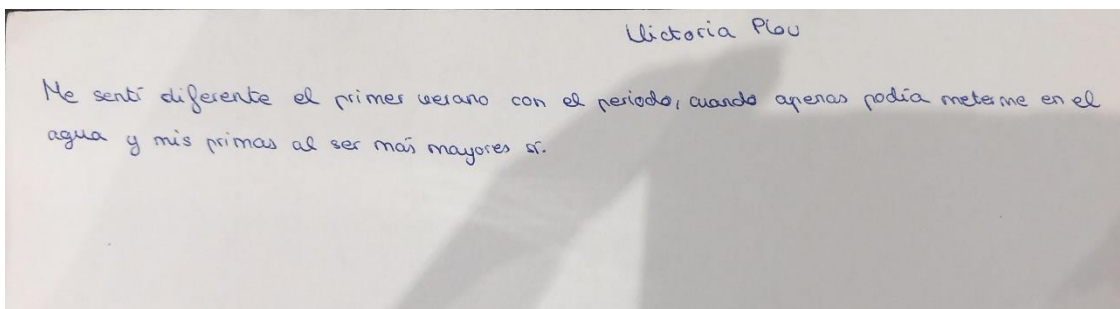 Victoria Plou
Me sentí diferente el primer verano con el periodo, cuando apenas podía meterme en el
agua y mis primas al ser más mayores sí.